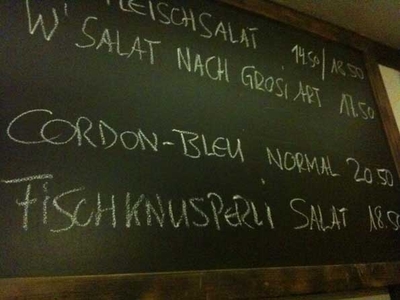 FLEISCHSALAT 14.50/18.50
W' SALAT NACH GROSI ART 17.50
CORDON-BLEU NORMAL 20.50
FISCHKNUSPERLI SALAT 18.50